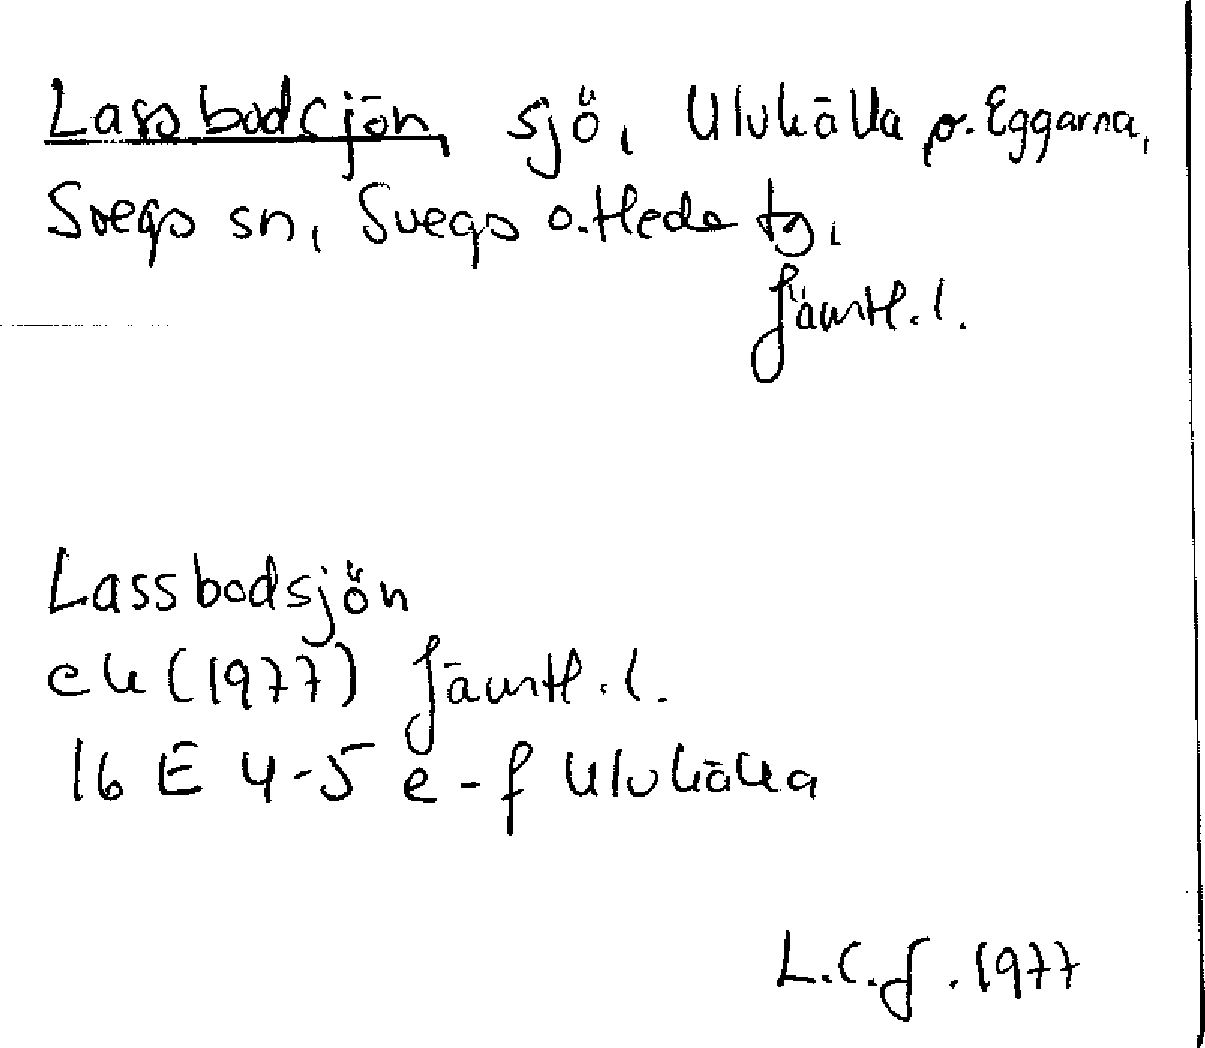 Lassbodsjön, sjö, Ulvkälla o. Eggarna,
Svegs sn, Svegs o. Hede tg,
Jämtl. l.
Lassbodsjön
ek (1977) Jämtl. l.
16 E 4-5 e-f Ulvkälla
L.C.J. 1977